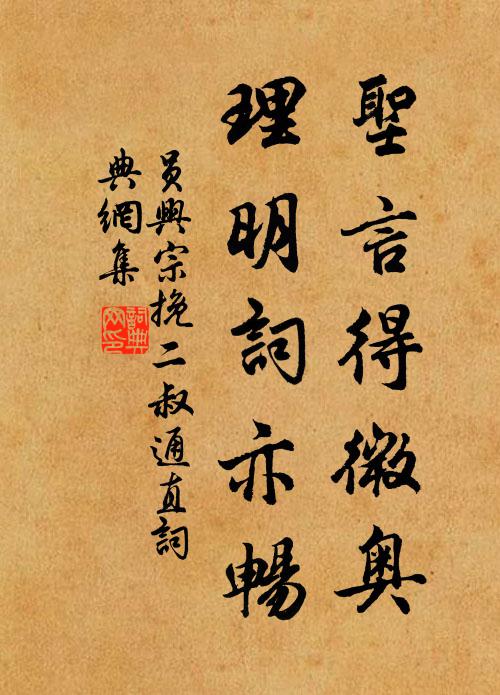 聖言得微奧
理明詞亦暢
員興宗挽二叔通直詞
典網集
詞典網印